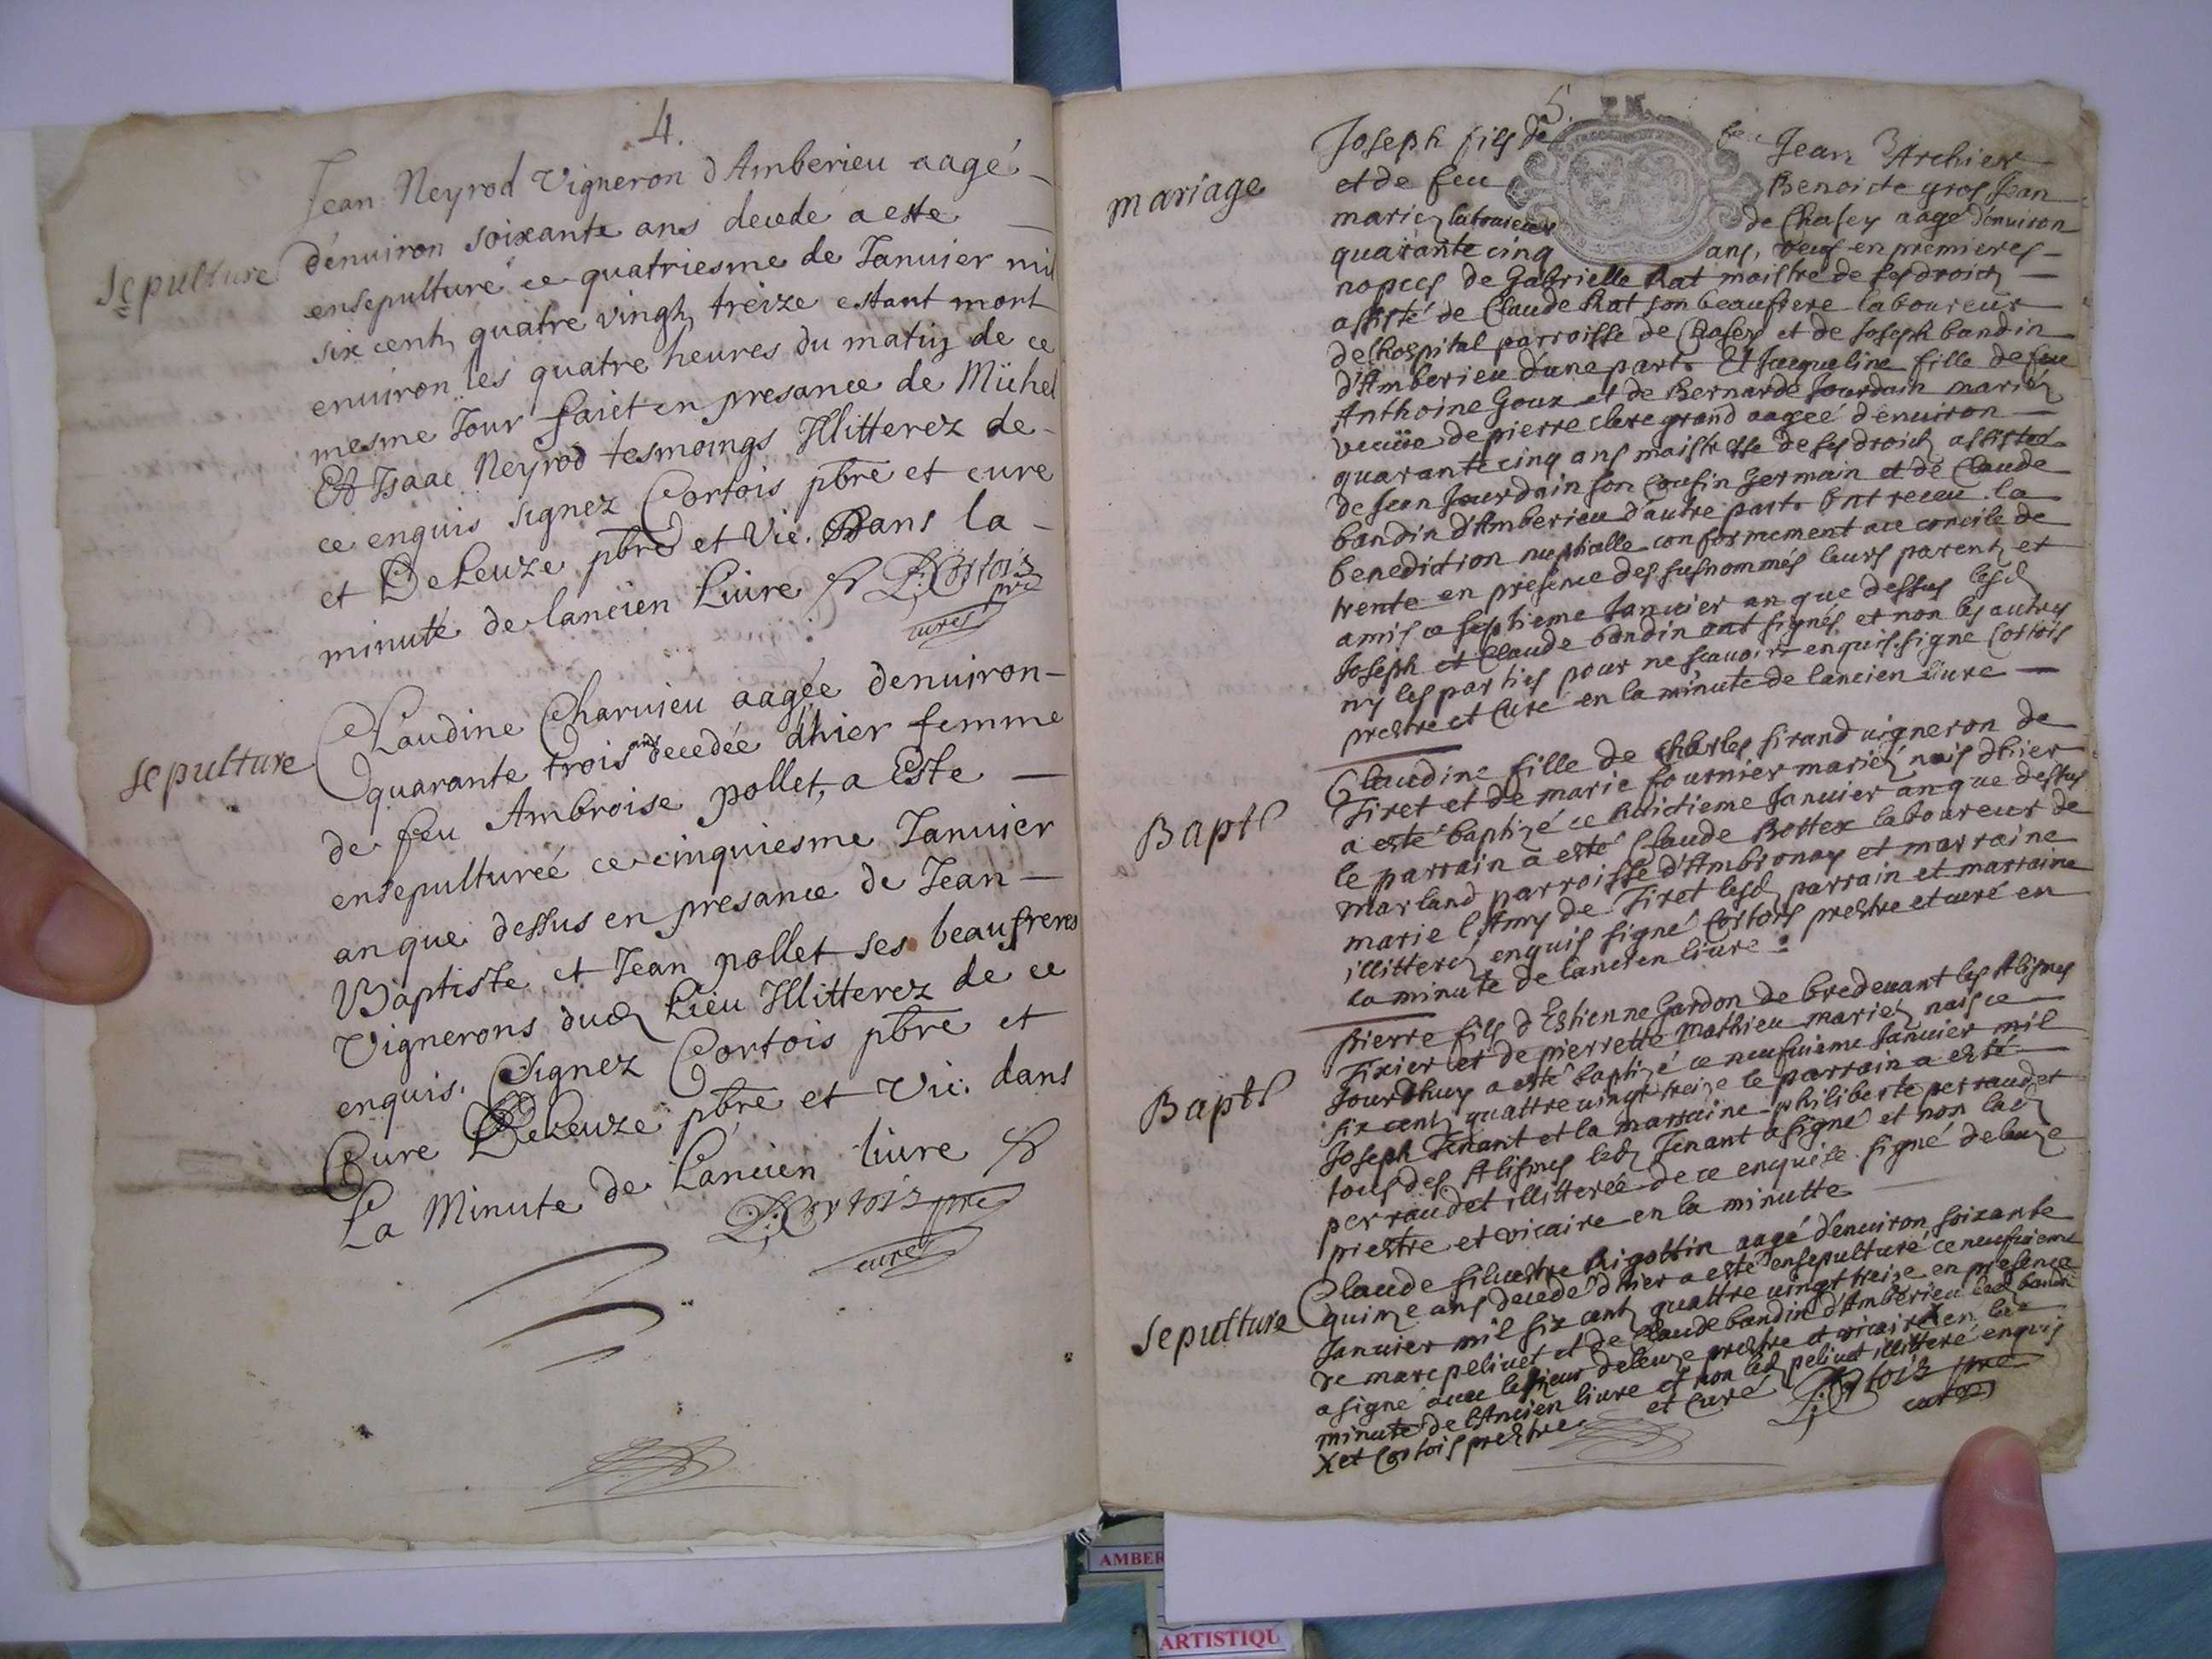 4.
Jean Neyrod Vigneron d'Amberieu aagé
sepulture
d'enuiron soixante ans decedé a este
ensepulturé ce quatriesme de Januier mil
six cents quatre vingts treize estant mort
enuiron les quatre heures du matin de ce
mesme Jour faict en presance de Michel
Et Isaac Neyrod tesmoings Illitterez de
ce enquis signez Cortois pbre et cure
et DeLeuze pbre et Vic. Dans la
minute de lancien Liure
Cortois pre
curé
sepulture
Claudine Charuieu aagée denuiron
quarante trois ans decedée d'hier femme
de feu Ambroise pollet, a Este
ensepulturée ce cinquiesme Januier
an que dessus en presance de Jean
Baptiste et Jean pollet ses beaufreres
Vignerons dud Lieu Illitterez de ce
enquis. Signez Cortois pbre et
Cure DeLeuze pbre et Vic. dans
La Minute de Lancien liure
Cortois pre
curé
5.
mariage
Joseph fils de feu Jean Archier
et de feu Benoicte gros Jean
mariez laboureur de Chasey aagé d'enuiron
quarante cinq ans, veuf en premieres
nopces de Gabrielle Rat maistre de ses droicts
assisté de Claude Rat son beaufrere laboureur
de lhospital parroisse de Chasey et de Joseph bandin
d'Amberieu d'une part. Et Jacqueline fille de feu
Anthoine Goux et de Bernarde Jourdain mariez
veuüe de pierre clere grand aagée d'enuiron
quarante cinq ans maistresse de ses droicts assistée
de Jean Jourdain son Cousin germain et de Claude
bandin d'Amberieu d'autre part. Ont receu la
benediction nuptialle conformement au concile de
trente en presence des susnommés leurs parents et
amis ce septieme Januier an que dessus lesd
Joseph et Claude bandin ont signés et non les autres
ny les parties pour ne scauoir enquis. signe Cortois
prestre et Curé en la minute de lancien liure
Bapt
Claudine fille de Charles sirand uigneron de
Tiret et de marie fournier mariez nais dhier
a esté baptizé ce huictieme Januier an que dessus
le parrain a esté Claude Bottex laboureur de
marland parroisse d'Ambronay et marraine
marie l'Amy de Tiret lesd parrain et marraine
illitterez enquis signé Cortois prestre et curé en
la minute de lancien liure
Bapt
pierre fils d'Estienne Gardon de bredeuant les Alismes
Tixier et de pierrette mathieu mariez nais ce
Jourdhuy a esté baptizé ce neufuieme Januier mil
six cents quattre uingt treize le parrain a esté
Joseph Tenant et la marraine philiberte perraudet
tous des Alismes led Tenant a signé et non lad
perraudet illitterée de ce enquise. signé deleuze
prestre et vicaire en la minutte
sepulture
Claude siluestre Rigottin aagé d'enuiron soixante
quinze ans decedé d'hier a esté ensepulturé ce neufuieme
Januier mil six cents quattre uingt treize en presence
de marc peliuet et de Claude bandin d'Amberieu led bandin
a signé auec le sieur deleuze prestre et vicaire X en la
minute de l'Ancien liure et non led peliuet illitteré enquis
X et Cortois prestre et Curé
Cortois pre
curé
AMBER
ARTISTIQU